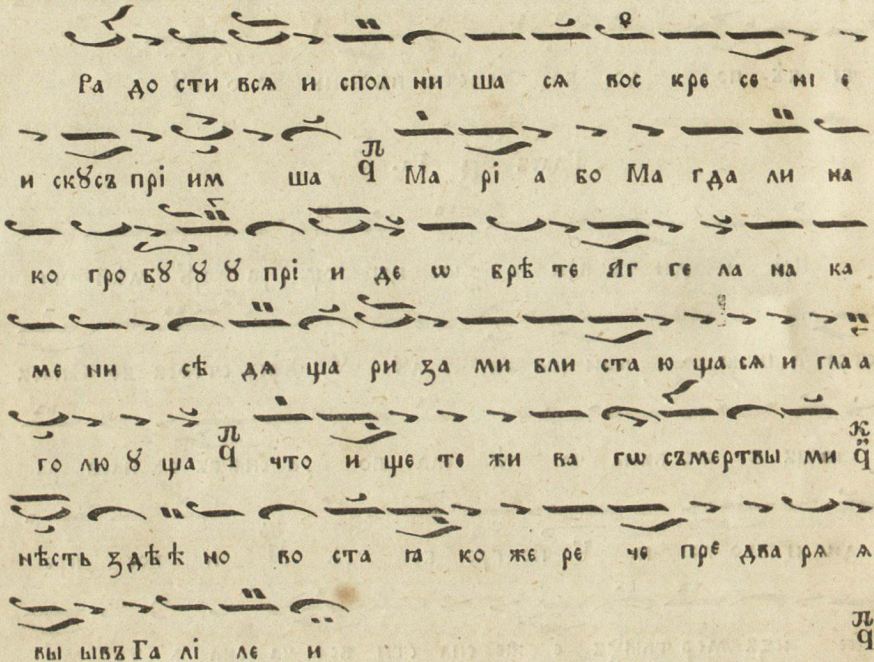 Ра до сти вся и спол ни ша ся вос кре се нї е
и скꙋсъ прї им ша п Ма рї а бо Ма гда ли на
ко гро бꙋ ꙋ ꙋ прї и де ѡ брѣ те Яг ге ла на ка
ме ни сѣ дѧ ща ри за ми бли ста ю ща ся и гла а
го лю ꙋ ща п что и ще те жи ва гѡ съ мертвы ми к
нѣсть здѣ ѣ но во ста ꙗ ко же ре че пре два ря я
вы ывъ Га лї ле и п